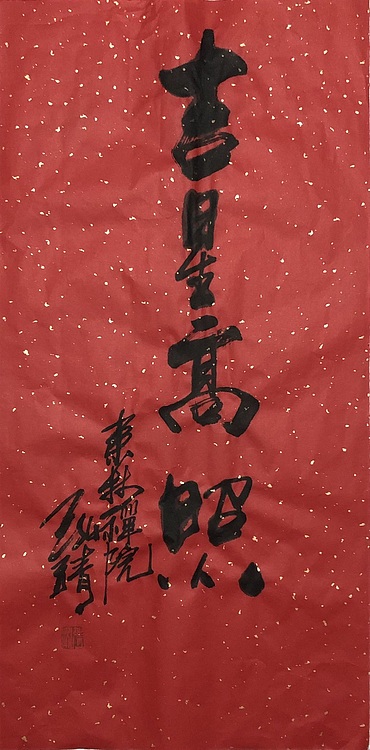 吉星高照
東林禪院